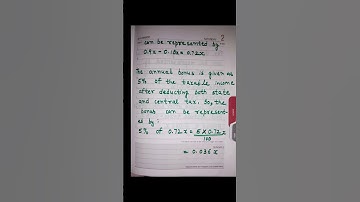 can be represented by
0.9x - 0.18x = 0.72x
The annual bonus is given as
5% of the taxable income
after deducting both state
and central tax. So, the
bonus can be represent-
ed by:
5% of 0.72x = 5 X 0.72x
100
= 0.036x